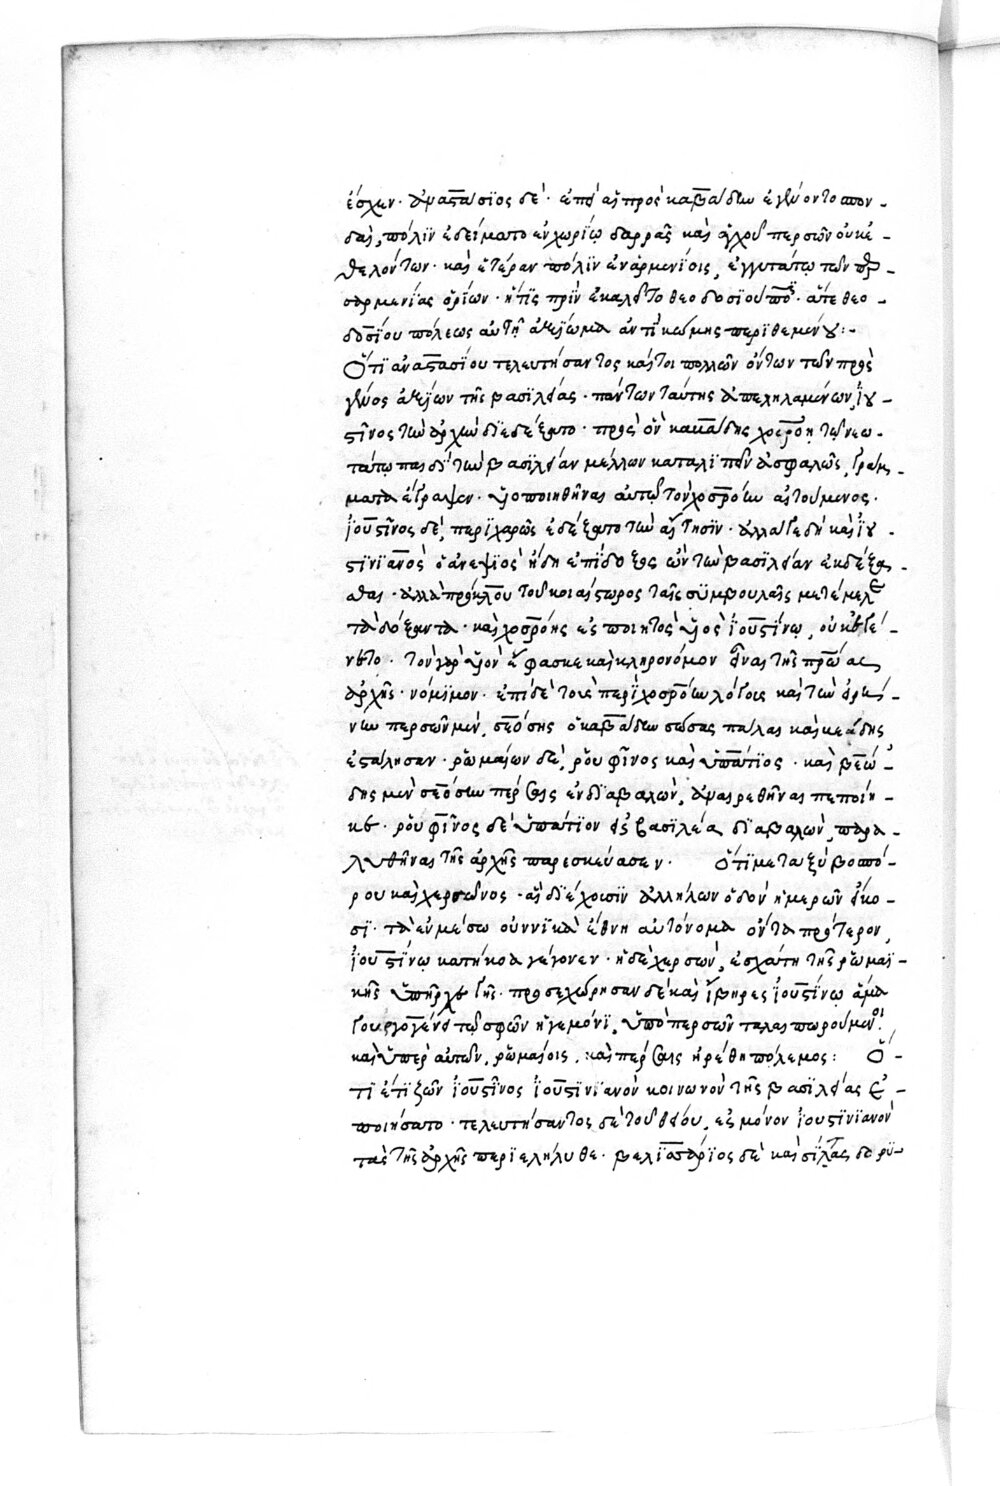 ἔσχεν· ἀναστάσιος δὲ· ἐπεὶ αἱ πρὸς καβάδην ἐγένοντο σπον-
δαὶ, πόλιν ἐδείματο ἐν χωρίῳ δαρρᾶς καὶ ἄγχου περσῶν οὐκ ἐ-
θελόντων· καὶ ἑτέραν πόλιν ἐν ἀρμενίοις, ἐγγυτάτω τῶν περ-
σαρμενίας ὁρίων· ἥτις πρὶν ἐκαλεῖτο θεοδοσιούπολις· ἅτε θεο-
δοσίου πόλεως αὐτῇ ἀξίωμα ἀντὶ κώμης περιθεμένου:-
Ὅτι ἀναστασίου τελευτήσαντος καίτοι πολλῶν ὄντων τῶν πρὸς
γένος ἀξίων τῆς βασιλείας· πάντων ταύτης ἀπεληλαμένων, ἰου-
στῖνος τὴν ἀρχὴν διεδέξατο· πρὸς ὃν καβάδης χοσρόῃ τῷ νεω-
τάτῳ παιδὶ τὴν βασιλείαν μέλλων καταλιπεῖν ἀσφαλῶς, γράμ-
ματα ἔγραψεν· εἰσποιηθῆναι αὐτῷ τὸν χοσρόην αἰτούμενος·
ἰουστῖνος δὲ, περιχαρῶς ἐδέξατο τὴν αἴτησιν· ἀλλά γε δὴ καὶ ἰου-
στινιανὸς ὁ ἀνεψιὸς ἤδη ἐπίδοξος ὢν τὴν βασιλείαν ἐκδέξα-
σθαι· ἀλλὰ πρόκλου τοῦ κοιαίστωρος ταῖς συμβουλαῖς μετέμελε
τὰ δόξαντα· καὶ χοσρόης εἰσποιητὸς υἱὸς ἰουστίνῳ, οὐκ ἐγέ-
νετο· τὸν γὰρ υἱὸν ἔφασκε καὶ κληρονόμον εἶναι τῆς πατρώας
ἀρχῆς· νόμιμον· ἐπὶ δὲ τοῖς περὶ χοσρόην λόγοις καὶ τὴν εἰρή-
νην περσῶν μὲν, σεόσης ὁ καβάδην σώσας πάλαι καὶ μεβόδης
ἐστάλησαν· ῥωμαίων δὲ, ῥουφῖνος καὶ ὑπάτιος· καὶ μεβό-
δης μὲν σεόσην πέρσαις ἐνδιαβαλὼν, ἀναιρεθῆναι πεποίη-
κε· ῥουφῖνος δὲ ὑπάτιον εἰς βασιλέα διαβαλὼν, παρα-
λυθῆναι τῆς ἀρχῆς παρεσκεύασεν· Ὅτι μεταξὺ βοσπό-
ρου καὶ χερσῶνος· αἳ διέχουσιν ἀλλήλων ὁδὸν ἡμερῶν εἴκο-
σι· τὰ ἐν μέσῳ οὐννικὰ ἔθνη αὐτόνομα ὄντα πρότερον,
ἰουστίνῳ κατήκοα γέγονεν· ἡ δὲ χερσὼν, ἐσχάτη τῆς ῥωμαϊ-
κῆς ὑπῆρχε γῆς· προσεχώρησαν δὲ καὶ ἴβηρες ἰουστίνῳ ἅμα
γουργογένει τῷ σφῶν ἡγεμόνι, ὑπὸ περσῶν ταλαιπωρούμενοι
καὶ ὑπὲρ αὐτῶν, ῥωμαίοις, καὶ πέρσαις ἠρέθη πόλεμος: Ὅ-
τι ἔτι ζῶν ἰουστῖνος ἰουστινιανὸν κοινωνὸν τῆς βασιλείας ἐ-
ποιήσατο· τελευτήσαντος δὲ τοῦ θείου, εἰς μόνον ἰουστινιανὸν
τὰ τῆς ἀρχῆς περιελήλυθε· βελισάριος δὲ καὶ σίττας δορυ-